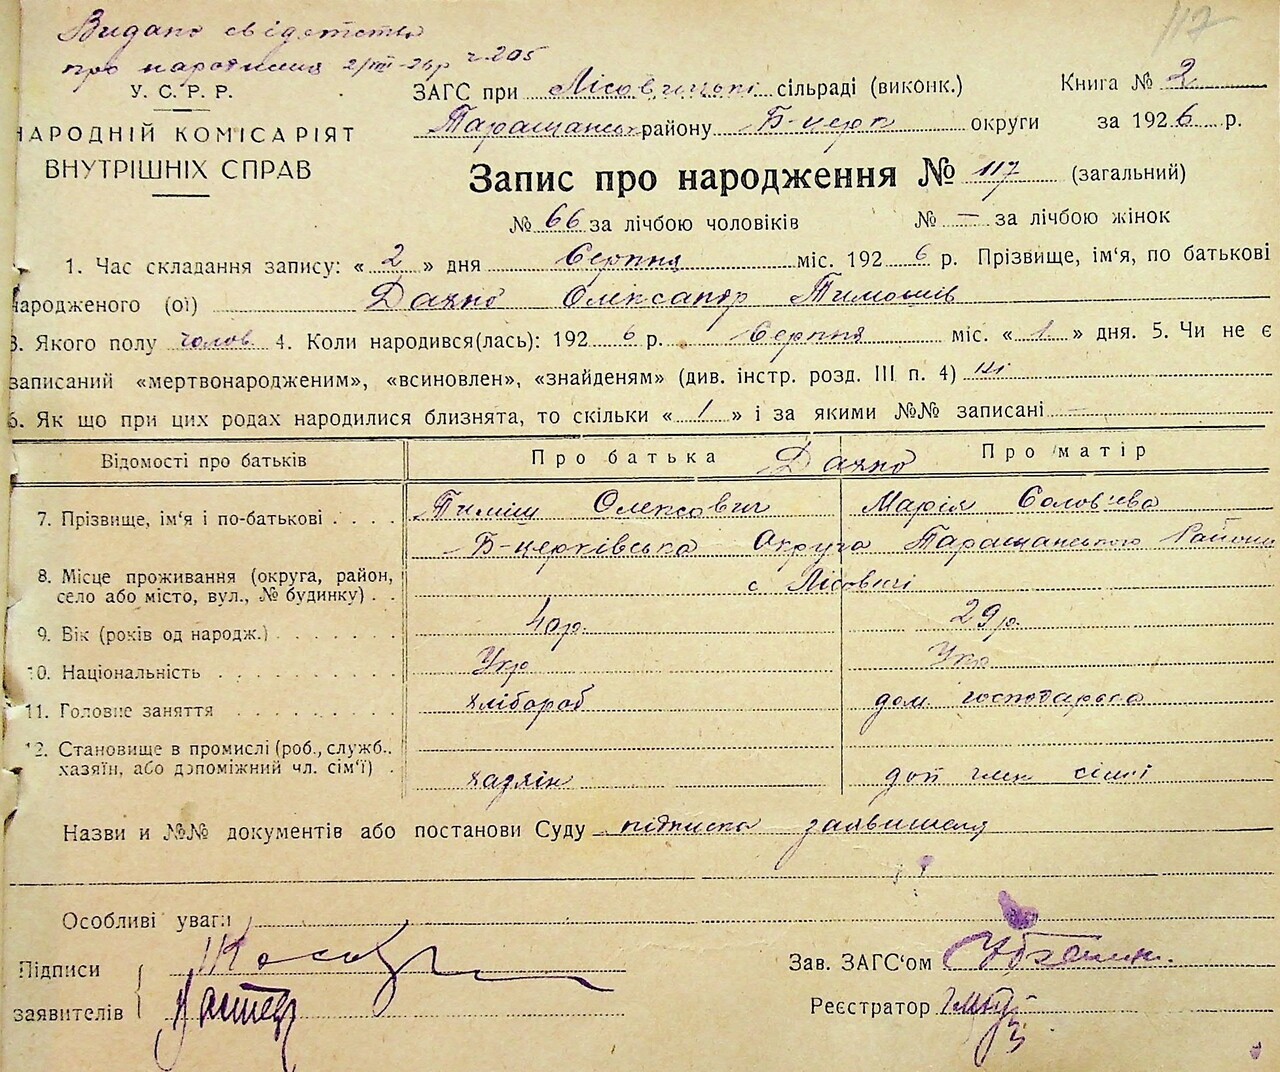 117
Видано свідетство
про народження 2/VIII-26р ч.205
У. С. Р. Р.
НАРОДНІЙ КОМІСАРІЯТ
ВНУТРІШНІХ СПРАВ
ЗАГС при Лісовицькі сільраді (виконк.) Книга № 2
Таращанськ району Б-церк округи за 1926 р.
Запис про народження № 117 (загальний)
№ 66 за лічбою чоловіків № — за лічбою жінок
1. Час складання запису: « 2 » дня Серпня міс. 1926 р. Прізвище, ім'я, по батькові
народженого (ої) Дачко Олександр Тимошів
3. Якого полу чолов 4. Коли народився(лась): 1926 р. Серпня міс. « 1 » дня. 5. Чи не є
записаний «мертвонародженим», «всиновлен», «знайденям» (див. інстр. розд. III п. 4) ні
6. Як що при цих родах народилися близнята, то скільки « 1 » і за якими №№ записані —
Відомості про батьків Про батька Дачко Про матір
7. Прізвище, ім'я і по-батькові Тиміш Олексович Марія Солов'єва
Б-церківська Округа Таращанського Району
8. Місце проживання (округа, район, село або місто, вул., № будинку) с Лісовичі
9. Вік (років од народж.) 40р. 29р.
10. Національність Укр Укр
11. Головне заняття хлібороб дом господарка
12. Становище в промислі (роб., служб., хазяїн, або допоміжний чл. сім'ї) хазяін доп член сімї
Назви и №№ документів або постанови Суду підписка заявителя
Особливі уваги
Підписи
заявителів
Зав. ЗАГС'ом
Реєстратор